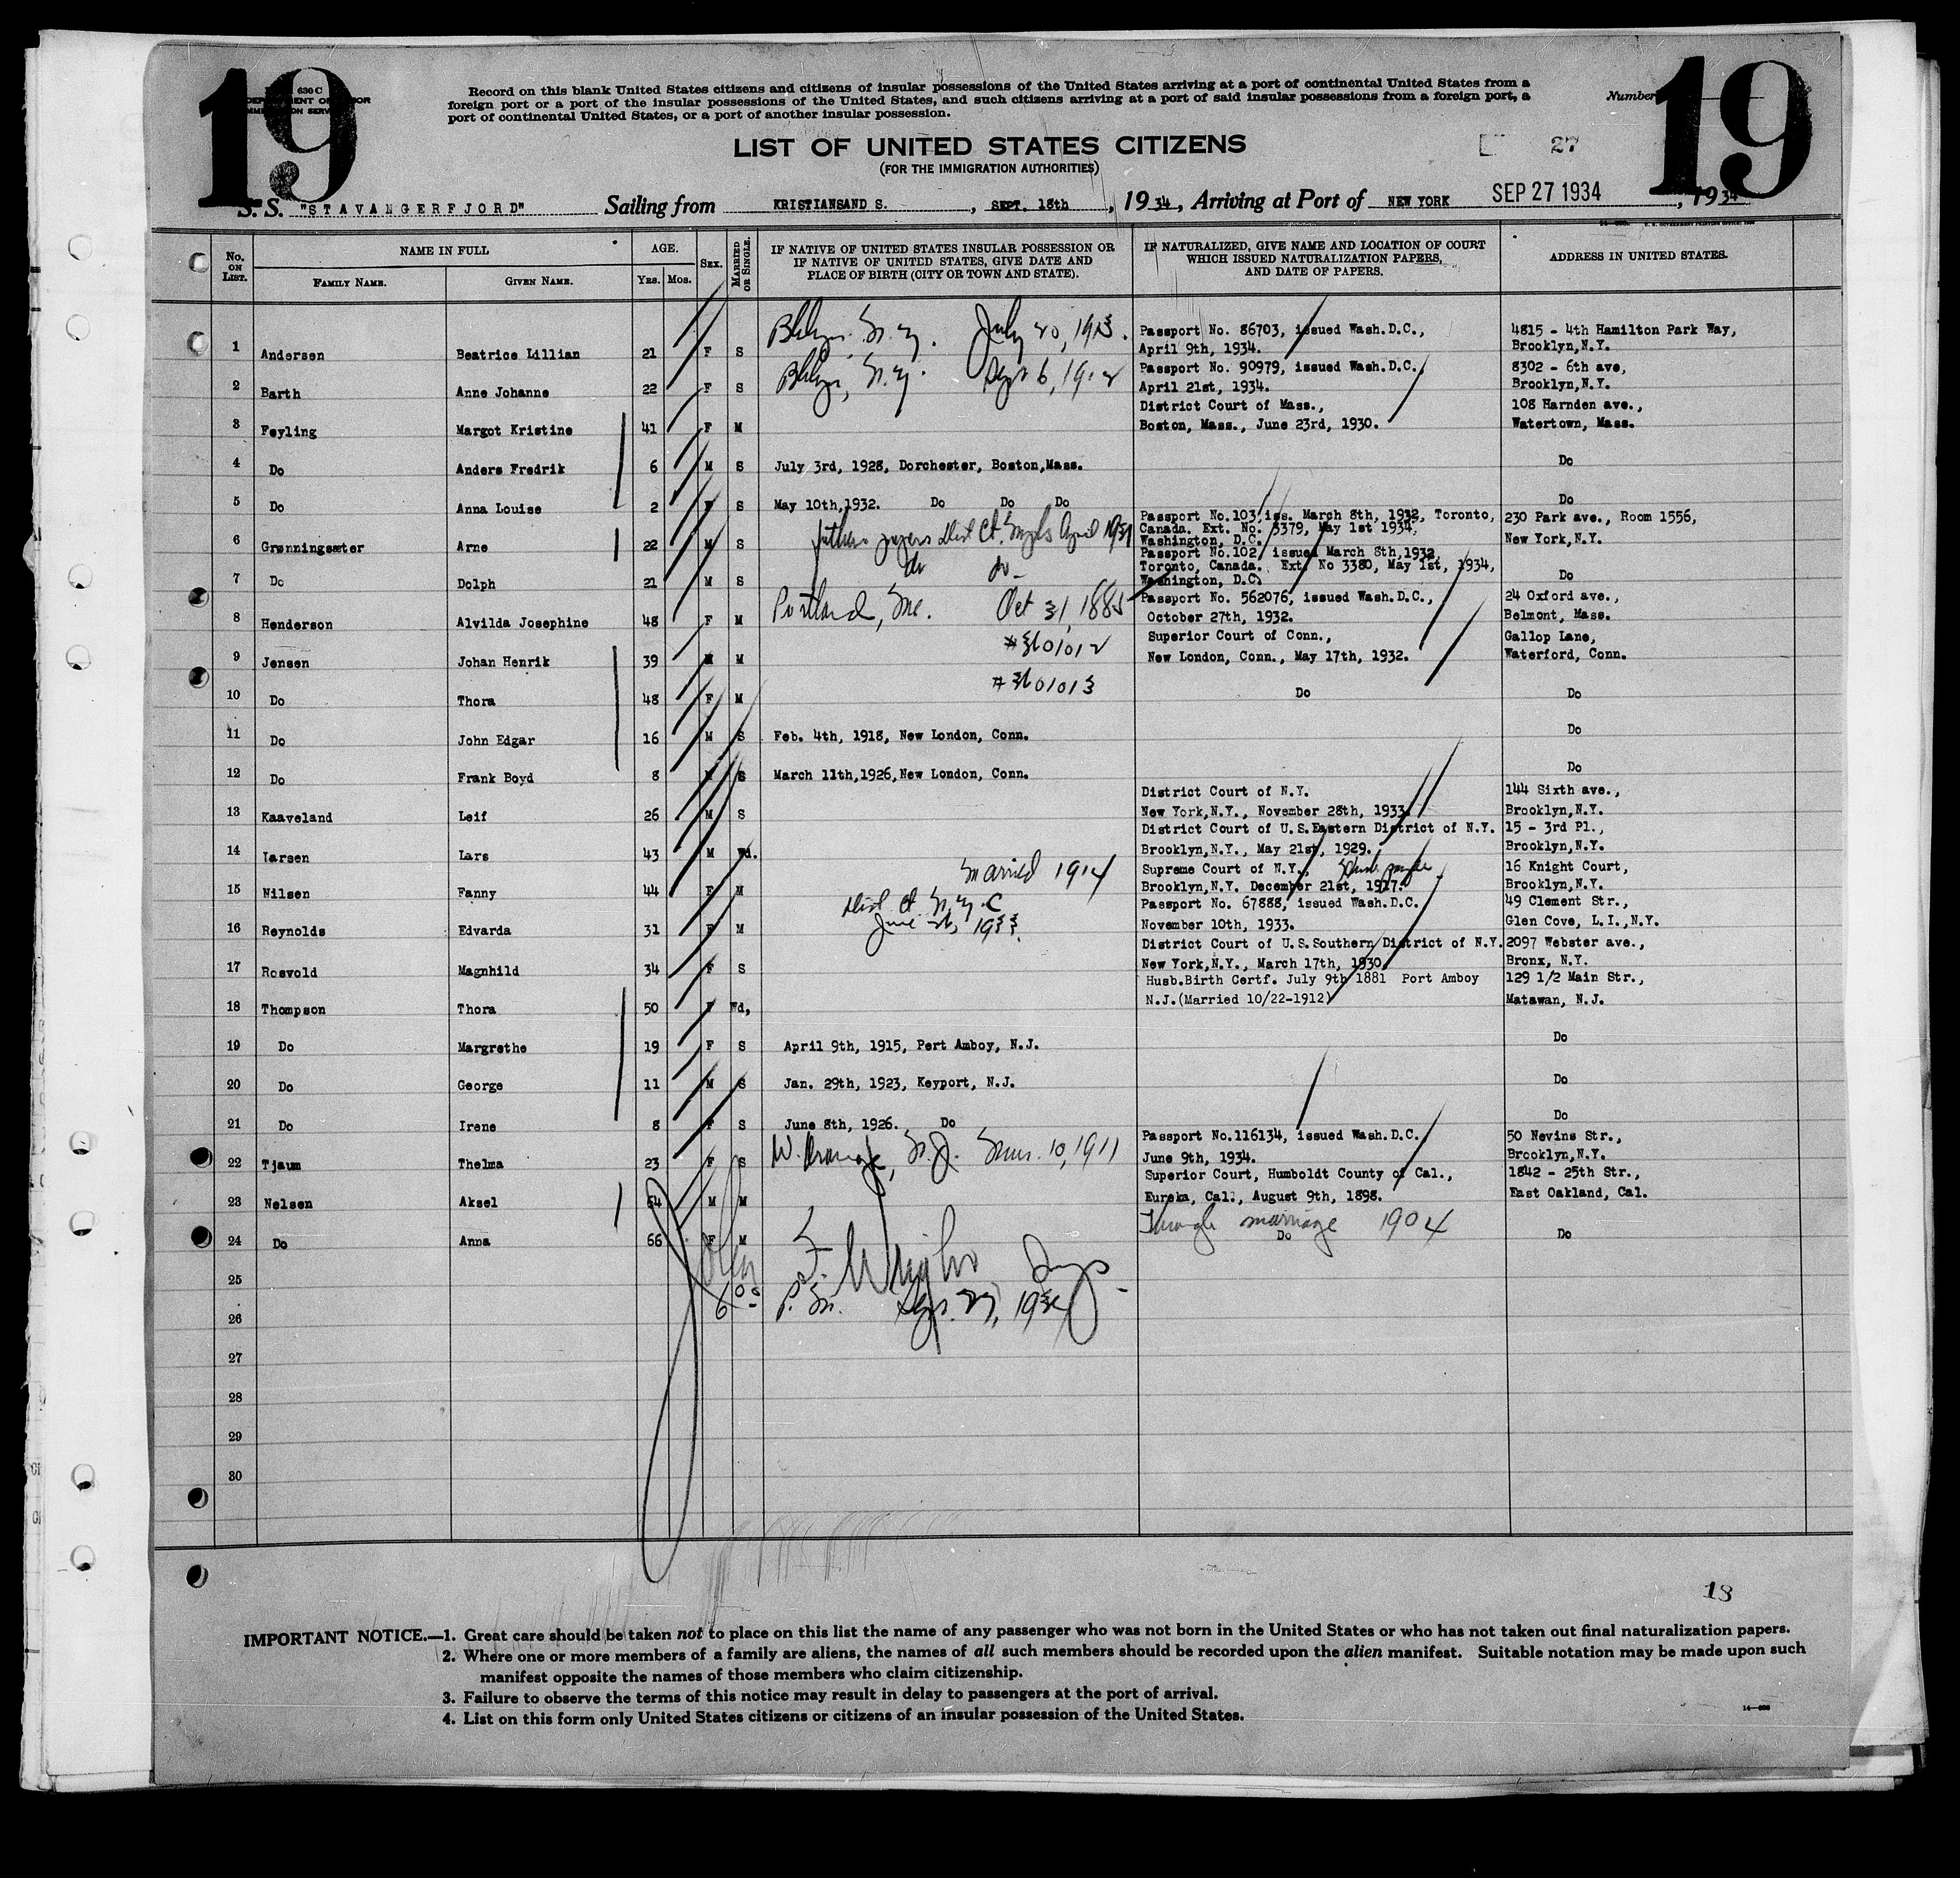 19
630 C
19
Record on this blank United States citizens and citizens of insular possessions of the United States arriving at a port of continental United States from a
foreign port or a port of the insular possessions of the United States, and such citizens arriving at a port of said insular possessions from a foreign port, a
port of continental United States, or a port of another insular possession.
Number
LIST OF UNITED STATES CITIZENS
(FOR THE IMMIGRATION AUTHORITIES)
27
S. S. "STAVANGERFJORD" Sailing from KRISTIANSAND S. , SEPT. 18th , 1934 , Arriving at Port of NEW YORK SEP 27 1934 , 1934
No. ON LIST. NAME IN FULL AGE. SEX. MARRIED OR SINGLE. IF NATIVE OF UNITED STATES INSULAR POSSESSION OR IF NATIVE OF UNITED STATES, GIVE DATE AND PLACE OF BIRTH (CITY OR TOWN AND STATE). IF NATURALIZED, GIVE NAME AND LOCATION OF COURT WHICH ISSUED NATURALIZATION PAPERS, AND DATE OF PAPERS. ADDRESS IN UNITED STATES.
FAMILY NAME. GIVEN NAME. YRS. MOS.
Bklyn. N.Y. July 20, 1913. Passport No. 86703, issued Wash.D.C., 4815 - 4th Hamilton Park Way,
1 Andersen Beatrice Lillian 21 F S April 9th, 1934. Brooklyn,N.Y.
Bklyn, N.Y. Sept 6, 1912 Passport No. 90979, issued Wash.D.C., 8302 - 6th ave,
2 Barth Anne Johanne 22 F S April 21st, 1934. Brooklyn,N.Y.
District Court of Mass., 108 Harnden ave.,
3 Feyling Margot Kristine 41 F M Boston, Mass., June 23rd, 1930. Watertown, Mass.
4 Do Anders Fredrik 6 M S July 3rd, 1928, Dorchester, Boston,Mass. Do
5 Do Anna Louise 2 F S May 10th,1932. Do Do Do Do
Passport No.103, iss. March 8th, 1932, Toronto, 230 Park ave., Room 1556,
Canada. Ext. No. 3379, May 1st 1934,
6 Grønningsæter Arne 22 M S fathers papers Dist Ct. April 1931 Washington, D.C. New York,N.Y.
Passport No.102, issued March 8th,1932,
do do - Toronto, Canada. Ext. No 3380, May 1st, 1934,
7 Do Dolph 21 M S Washington, D.C. Do
Portland, Me. Oct 31, 1885 Passport No. 562076, issued Wash.D.C., 24 Oxford ave.,
8 Henderson Alvilda Josephine 48 F M October 27th, 1932. Belmont, Mass.
#3601012 Superior Court of Conn., Gallop Lane,
9 Jensen Johan Henrik 39 M M New London, Conn., May 17th, 1932. Waterford, Conn.
#3601013
10 Do Thora 48 F M Do Do
11 Do John Edgar 16 M S Feb. 4th, 1918, New London, Conn. Do
12 Do Frank Boyd 8 M S March 11th,1926,New London, Conn. Do
District Court of N.Y. 144 Sixth ave.,
13 Kaaveland Leif 26 M S New York,N.Y., November 28th, 1933. Brooklyn,N.Y.
District Court of U.S.Eastern District of N.Y. 15 - 3rd Pl.,
14 Larsen Lars 43 M Wd. Brooklyn,N.Y., May 21st, 1929. Brooklyn,N.Y.
Married 1914 Supreme Court of N.Y., 16 Knight Court,
15 Nilsen Fanny 44 F M Brooklyn,N.Y. December 21st, 1917. Brooklyn,N.Y.
Dist Ct N.Y.C Passport No. 67888, issued Wash.D.C. 49 Clement Str.,
16 Reynolds Edvarda 31 F M June 1933. November 10th, 1933. Glen Cove, L.I.,N.Y.
District Court of U.S.Southern District of N.Y. 2097 Webster ave.,
17 Rosvold Magnhild 34 F S New York,N.Y., March 17th, 1930. Bronx, N.Y.
Husb.Birth Certf. July 9th 1881 Port Amboy 129 1/2 Main Str.,
18 Thompson Thora 50 F Wd, N.J.(Married 10/22-1912) Matawan, N.J.
19 Do Margrethe 19 F S April 9th, 1915, Pert Amboy, N.J. Do
20 Do George 11 M S Jan. 29th, 1923, Keyport, N.J. Do
21 Do Irene 8 F S June 8th, 1926. Do Do
W. Orange, N.J. Mar. 10, 1911 Passport No.116134, issued Wash.D.C. 50 Nevins Str.,
22 Tjaum Thelma 23 F S June 9th, 1934. Brooklyn,N.Y.
Superior Court, Humboldt County of Cal., 1842 - 25th Str.,
23 Nelsen Aksel 64 M M Eureka, Cal., August 9th, 1898. East Oakland, Cal.
Through marriage 1904
24 Do Anna 66 F M Do Do
25
26 Sept. 27, 1934
27
28
29
30
18
IMPORTANT NOTICE.—1. Great care should be taken not to place on this list the name of any passenger who was not born in the United States or who has not taken out final naturalization papers.
2. Where one or more members of a family are aliens, the names of all such members should be recorded upon the alien manifest. Suitable notation may be made upon such
manifest opposite the names of those members who claim citizenship.
3. Failure to observe the terms of this notice may result in delay to passengers at the port of arrival.
4. List on this form only United States citizens or citizens of an insular possession of the United States.